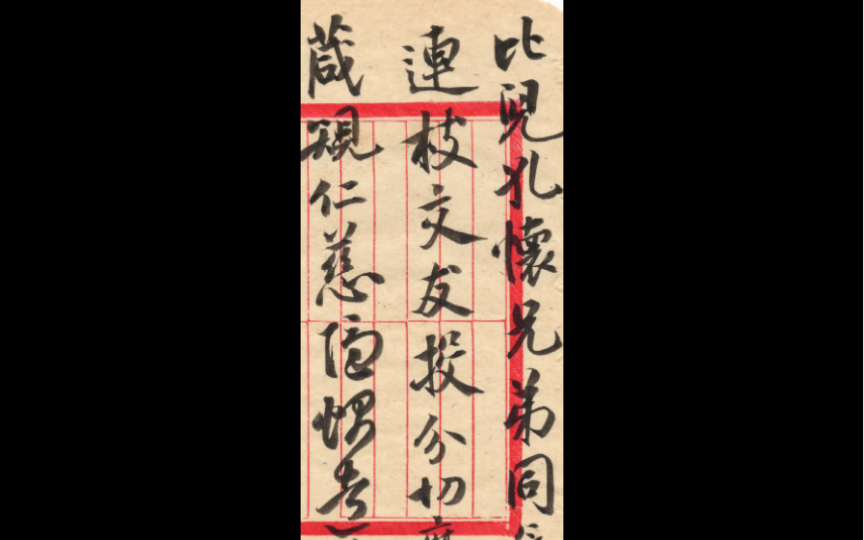 比兒孔懷兄弟同
連枝交友投分切
葴規仁慈隱惻造